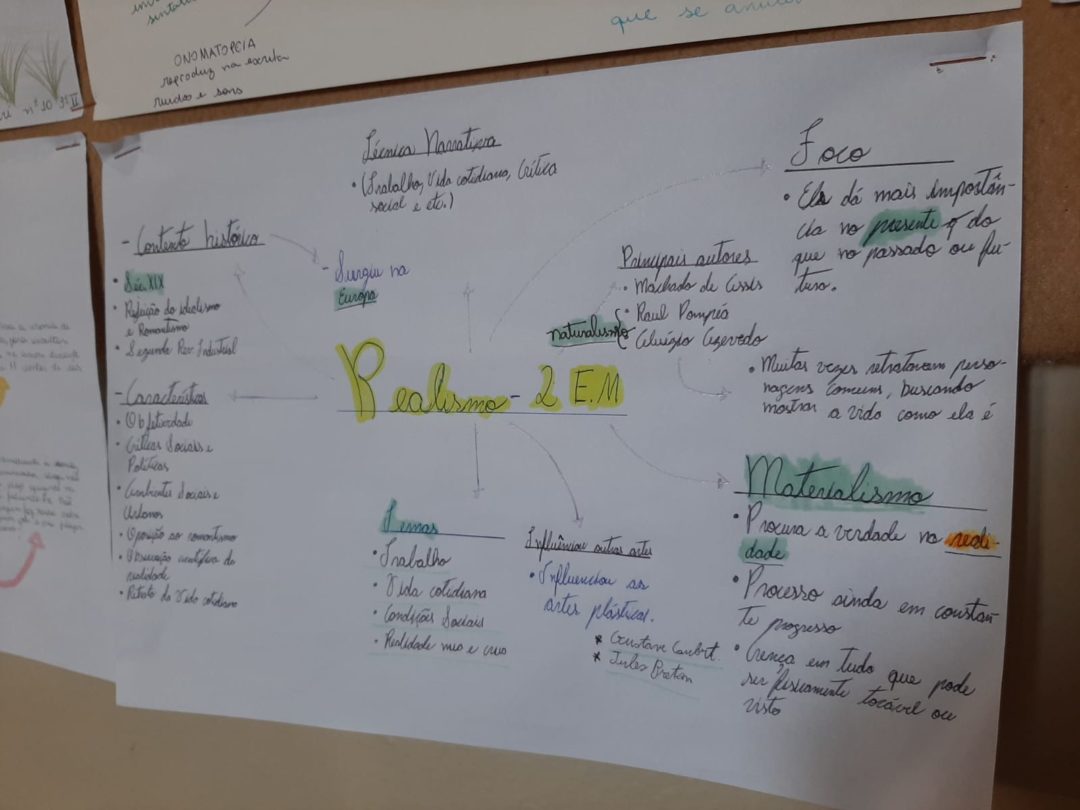 que se anula
ONOMATOPEIA
reproduz na escrita
ruídos e sons
nº 10 3ºII
Técnica Narrativa
• (Trabalho, Vida cotidiana, Crítica
social e etc.)
Foco
• Ele dá mais importân-
cia no presente q do
que no passado ou fu-
turo.
- Contexto histórico
• Séc. XIX
• Rejeição do Idealismo
e Romantismo
• Segunda Rev. Industrial
- Surgiu na
Europa
Principais autores
• Machado de Assis
naturalismo { • Raul Pompéia
• Aluízio Azevedo
• Muitas vezes retratavam perso-
nagens comuns, buscando
mostrar a vida como ela é
Realismo - 2 E.M
- Características
• Objetividade
• Críticas Sociais e
Políticas
• Ambientes Sociais e
Urbanos
• Oposição ao romantismo
• Observação científica da
realidade
• Retrato da Vida cotidiana
Temas
• Trabalho
• Vida cotidiana
• Condições Sociais
• Realidade nua e crua
Influênciou outras artes
• Influenciou as
artes plásticas.
* Gustave Coubert.
* Jules Breton
Materialismo
• Procura a verdade na reali-
dade
• Processo ainda em constan-
te progresso
• Crença em tudo que pode
ser fisicamente tocável ou
visto